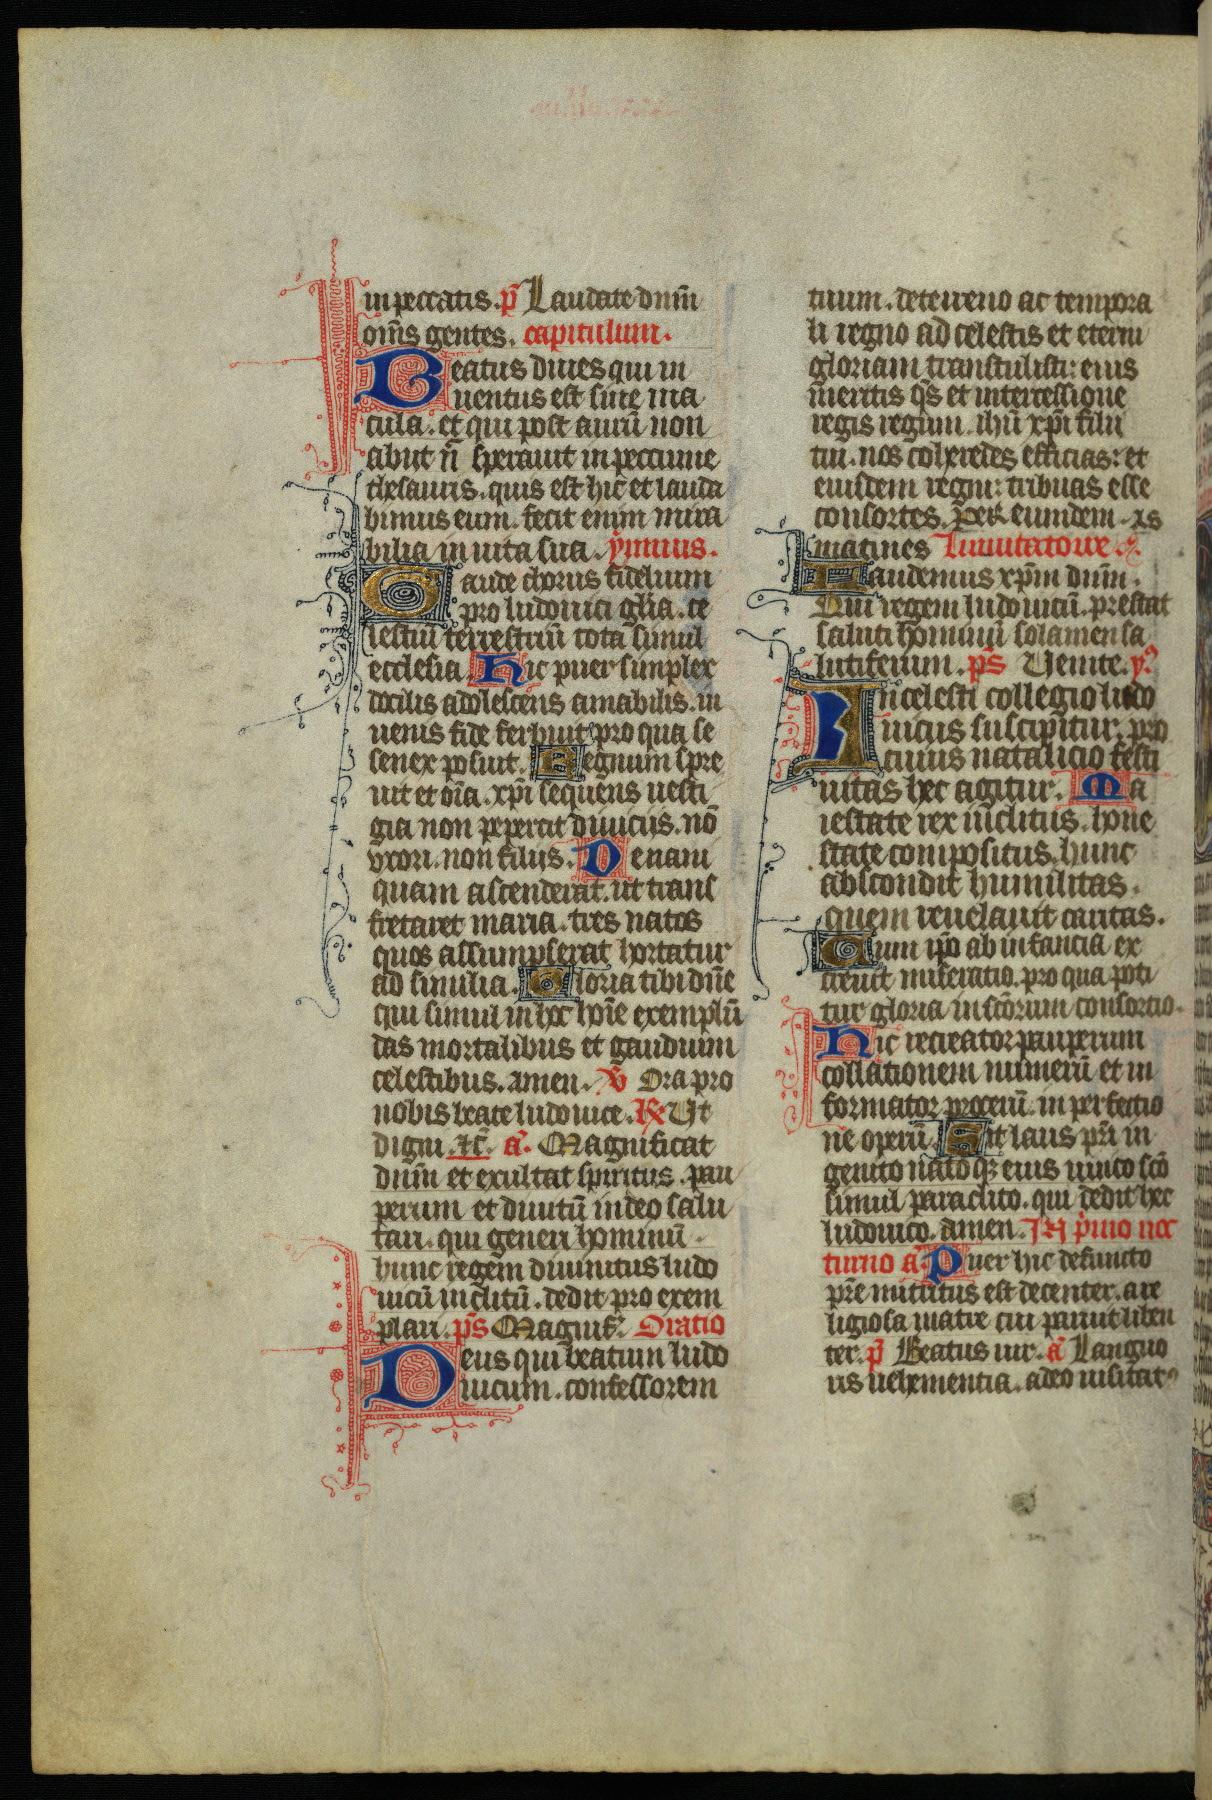 in peccatis. p̃s Laudate dnm̃
om̃s gentes. capitulum.
Beatus diues qui in
uentus est sine ma
cula. et qui post aurũ non
abiit ñ sperauit in peccunie
thesauris. quis est hic et lauda
bimus eum. fecit enim mira
bilia in uita sua. ymnus.
Gaude chorus fidelium
pro ludouici gl̃ia. ce
lestiũ terrestriũ tota simul
ecclesia. Hic puer simplex
docilis adolescens amabilis. in
uenis fide ferbuit pro qua se
senex posuit. Regnum spre
uit et oĩa. xp̃i sequens uesti
gia non pepercit diuicijs. nõ
vxori. non filijs. Denam
quam ascenderat. ut trans
fretaret maria. tres natos
quos assumpserat hortatur
ad similia. Gloria tibi dñe
qui simul in hoc hoĩe exemplũ
das mortalibus et gaudium
celestibus. amen. V̄ Ora pro
nobis beate ludouice. R̄ Ut
digni. ⁊c̃. ã. Magnificat
dnm̃ et exultat spiritus. pau
perum et diuitũ in deo salu
tari. qui generi hominũ
hunc regem diuinitus ludo
uicũ inclitũ. dedit pro exem
plari. p̃s Magnif. Oratio
Deus qui beatum ludo
uicum. confessorem
tuum. de terreno ac tempora
li regno ad celestis et eterni
gloriam transtulisti: eius
meritis q̃s et intercessione
regis regum. ihũ xp̃i filii
tui. nos coheredes efficias: et
eiusdem regni: tribuas esse
consortes. Per eumdem. xs
matines Inuitatoire.
Laudemus xp̃m dnm̃.
Qui regem ludouicũ. prestat
saluti hominũ solamen sa
lutiferum. p̃s Uenite. y
In celesti collegio ludo
uicus suscipitur. pro
cuius natalicio festi
uitas hec agitur. Ma
iestate rex inclitus. hone
state compositus. hunc
abscondit humilitas.
quem reuelauit caritas.
Cum ip̃o ab infancia ex
creuit miseratio. pro qua poti
tur gloria in sc̃orum consortio.
Hic recreator pauperum
collationem munerũ et in
formator procerũ. in perfectio
ne operũ. Sit laus pr̃i in
genito nato q̃ eius unico scõ
simul paraclito. qui dedit hec
ludouico. amen. In p̃mo noc
turno ã. Puer hic defuncto
pr̃e nutritus est decenter. a re
ligiosa matre cui paruit liben
ter. p̃ Beatus uir. ã Languo
us uehementia. adeo uisitat